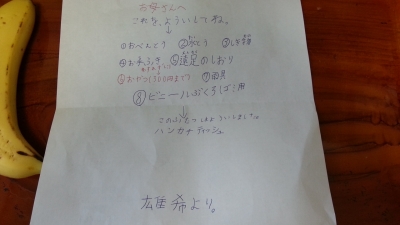 お母さんへ
これを、よういしてね。
↓
①おべんとう ②水とう ③しき物
④お手ふき ⑤遠足のしおり
⑥おやつ(100円まで) ⑦雨具
⑧ビニールぶくろ
↓
このふたつはよういしました
ハンカチティッシュ
雄希より。